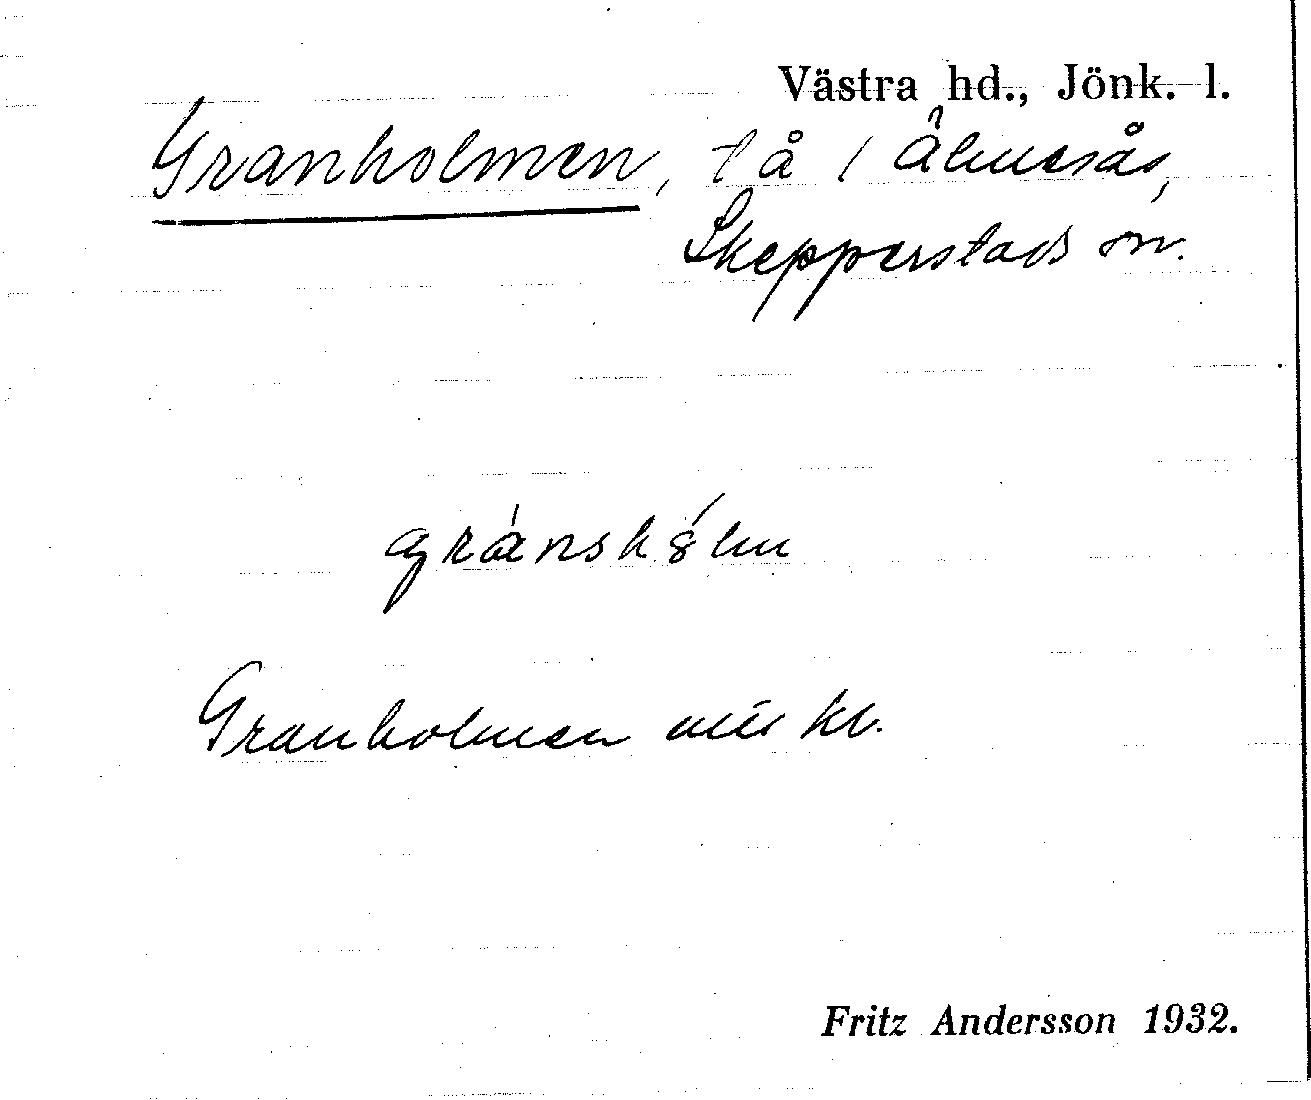 Västra hd., Jönk. l.
Granholmen, t å / Älmesås,
Skepperstads sn.
gránshó̤lm
Granholmen mil kl.
Fritz Andersson 1932.